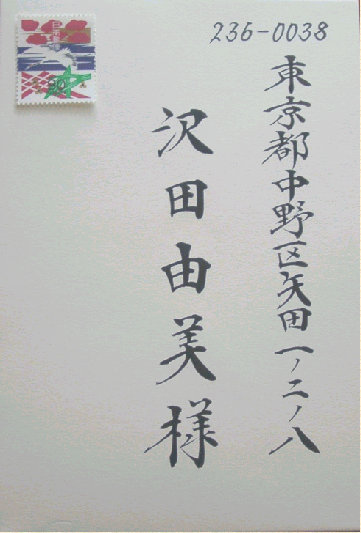 236-0038
東京都中野区矢田一ノ二ノ八
沢田由美様